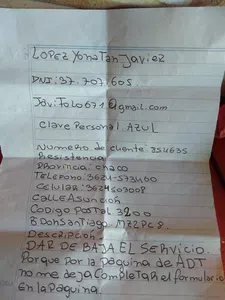 LOPEZ YonaTan Javiez
DNI:37.707.605
JaviToLo671@gmail.com
Clave Personal. AZUL
Numero de cliente: 354635
Resistencia
Provincia: chaco
TELEFONO: 3624-533400
CeLuLar: 3624603008
CALLE Asuncion
CODIGO POSTAL 3200
B DonSantiago. MZ2 PC8.
Descripcion
DAR DE BAJA EL Servicio
Porque Por la Página de ADT
no me deja CompleTar el formulario
En La Pagina.